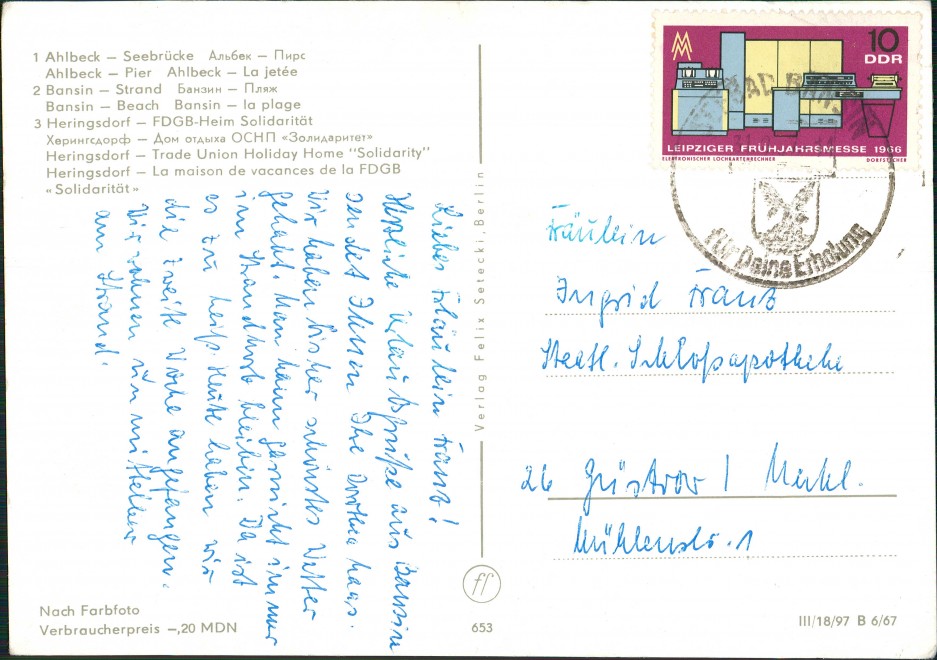 1 Ahlbeck – Seebrücke Альбек – Пирс
Ahlbeck – Pier Ahlbeck – La jetée
2 Bansin – Strand Банзин – Пляж
Bansin – Beach Bansin – la plage
3 Heringsdorf – FDGB-Heim Solidarität
Херингсдорф – Дом отдыха ОСНП «Золидаритет»
Heringsdorf – Trade Union Holiday Home "Solidarity"
Heringsdorf – La maison de vacances de la FDGB
«Solidarität»
Liebes Fräulein Franz!
Herzliche Urlaubsgrüße aus Bansin
sendet Ihnen Ihre Dorothea Haas.
Wir haben bisher schönstes Wetter
gehabt. Man kann garnicht immer
im Strandkorb bleiben. Da ist
es zu heiß. Heute haben wir
die zweite Woche angefangen.
Wir wohnen unmittelbar
am Strand.
Verlag Felix Setecki, Berlin
10
DDR
LEIPZIGER FRÜHJAHRSMESSE 1966
ELEKTRONISCHER LOCHKARTENRECHNER DORFSTECHER
BAD BANSIN
für Deine Erholung
Fräulein
Ingrid Franz
Staatl. Schloßapotheke
26 Güstrow / Meckl.
Mühlenstr. 1
Nach Farbfoto
Verbraucherpreis –,20 MDN
ff
653
III/18/97 B 6/67